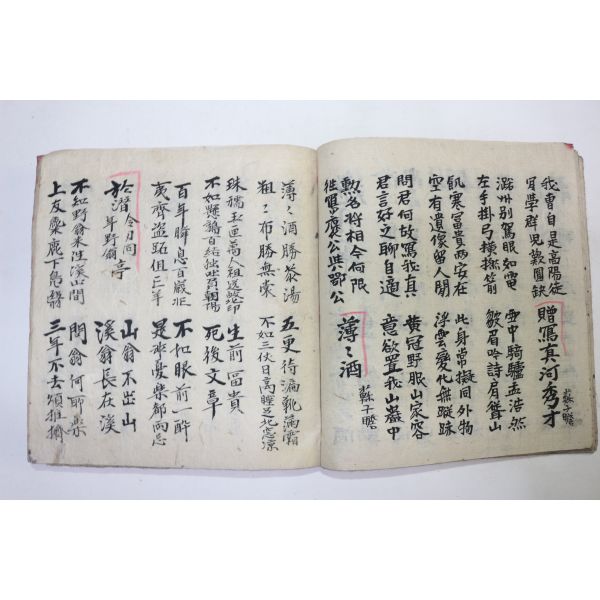 我曹自是高陽徒
肩學群兒歎圓缺
贈寫真河秀才
蘇子瞻
潞州別駕眼如電
左手掛弓橫撚箭
雪中騎驢孟浩然
皺眉吟詩肩聳山
飢寒冨貴兩安在
空有遺像留人間
此身常擬同外物
浮雲變化無蹤跡
問君何故寫我真
君言好之聊自適
黄冠野服山家容
意欲置我山巖中
勲名將相今何限
往寫褒公與鄂公
薄〻酒
蘇子瞻
薄〻酒勝茶湯
粗〻布勝無裳
五更待漏靴滿霜
不如三伏日高睡足北窓凉
珠襦玉匣萬人祖送歸北邙
不如懸鶉百結獨坐負朝陽
生前冨貴
死後文章
百年瞬息百歲忙
夷齊盗跖俱亡羊
不如眼前一醉
是非憂樂都兩忘
於潛令刁同年野翁亭
山翁不出山
溪翁長在溪
不如野翁來往溪山間
上友麋鹿下鳧鷖
問翁何所樂
三年不去煩推擠